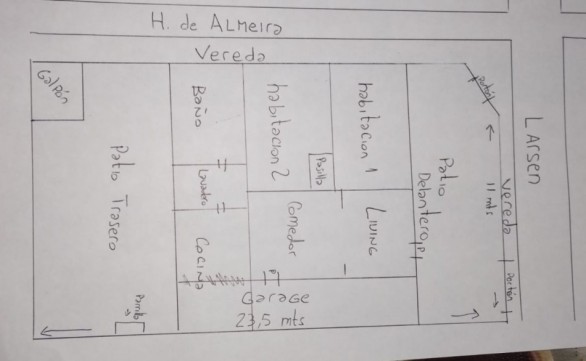 H. de ALMeira
Vereda
LARSEN
vereda
11 mts
portón
portón
Galpón
Patio Trasero
Bomba
Baño
Lavadero
Cocina
habitacion 2
Pasillo
habitacion 1
Comedor
LIVING
Patio
Delantero
P
P
Garage
23,5 mts